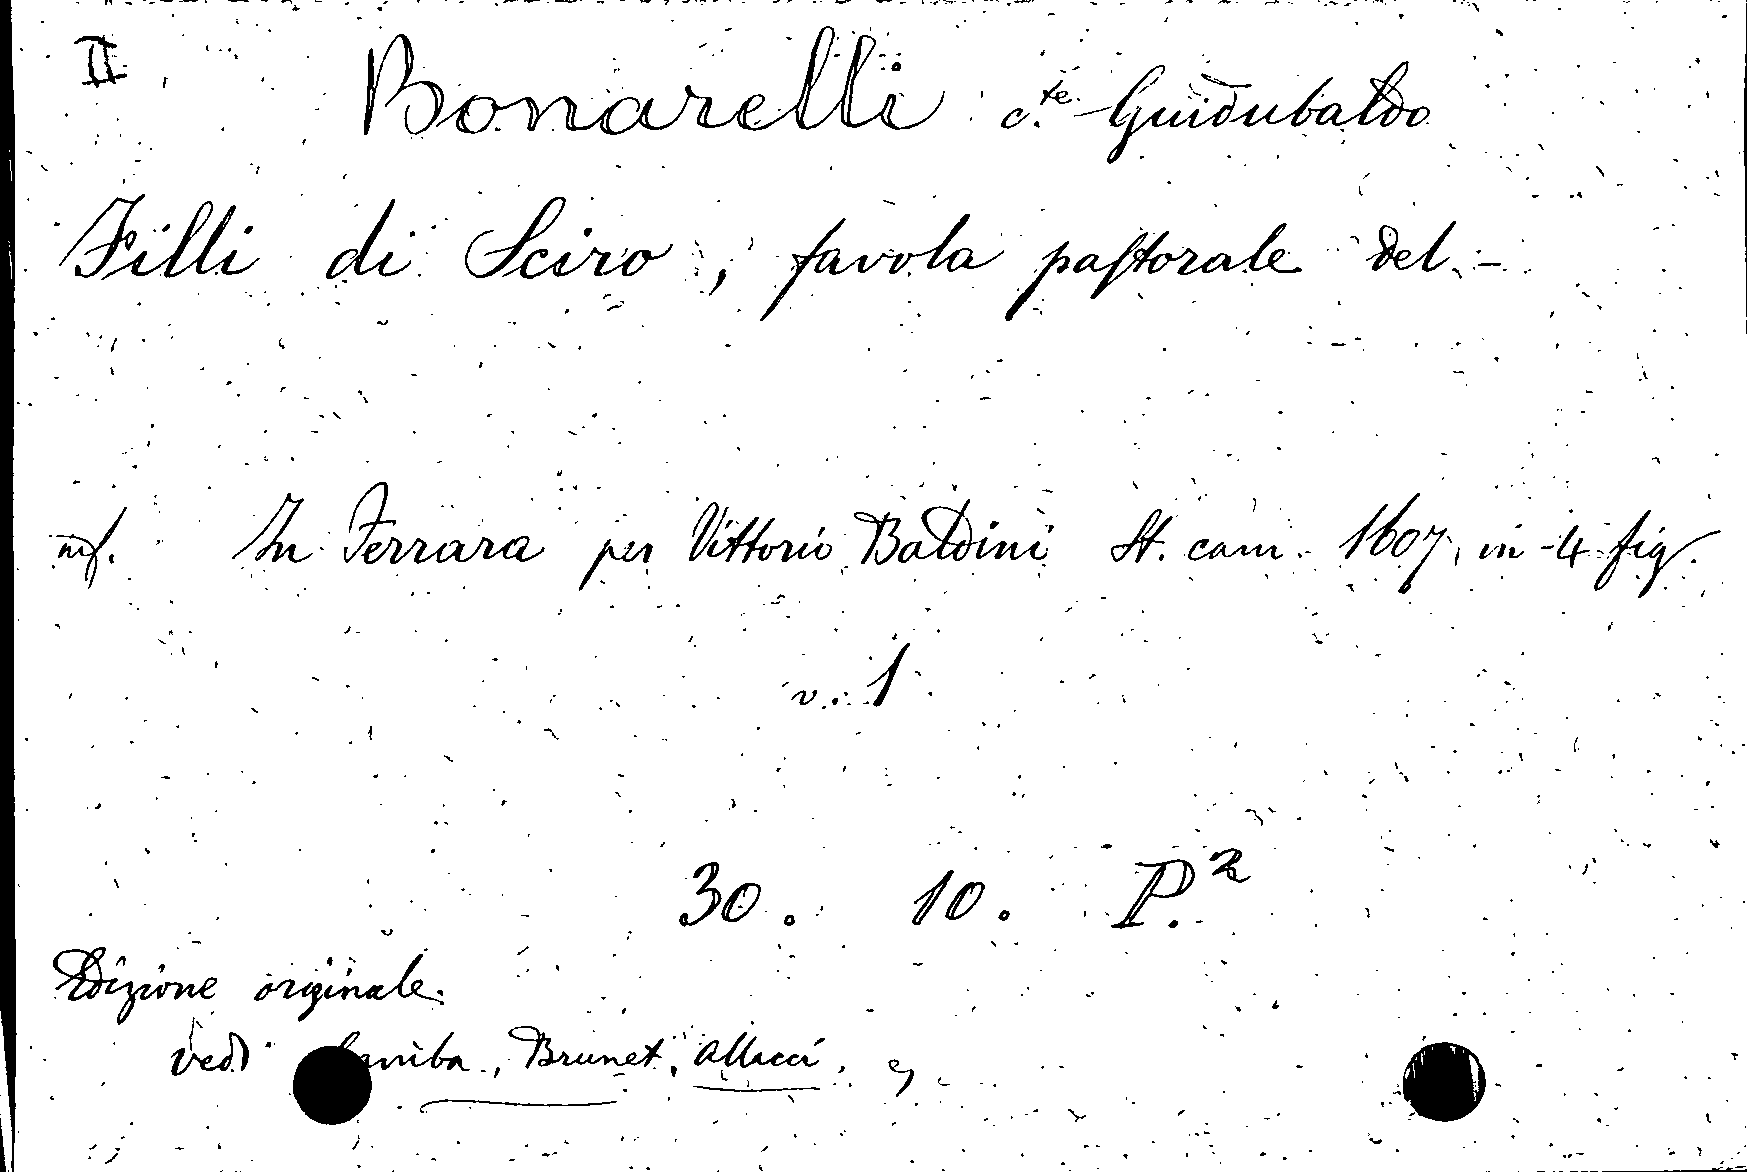 II Bonarelli c.te Guidubaldo
Filli di Sciro, favola pastorale del -
In Ferrara per Vittorio Baldini St. cam. 1607, in-4 fig.
v. 1
30. 10. P.2
Edizione originale.
Vedi Brunet, Allacci,